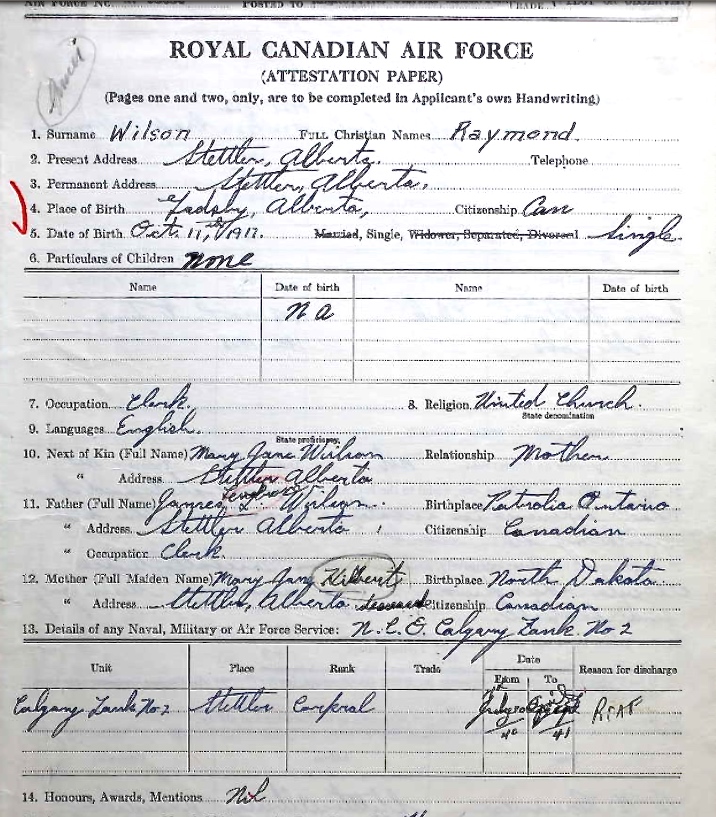 ROYAL CANADIAN AIR FORCE
(ATTESTATION PAPER)
(Pages one and two, only, are to be completed in Applicant's own Handwriting)
1. Surname Wilson Full Christian Names Raymond.
2. Present Address Stettler, Alberta. Telephone
3. Permanent Address Stettler, Alberta.
4. Place of Birth Gadsby, Alberta, Citizenship Can
5. Date of Birth Oct. 11th, 1917. Married, Single, Widower, Separated, Divorced Single.
6. Particulars of Children none
Name Date of birth Name Date of birth
n a
7. Occupation Clerk. 8. Religion United Church
State denomination
9. Languages English.
State proficiency
10. Next of Kin (Full Name) Mary Jane Wilson Relationship Mother
" Address Stettler Alberta
11. Father (Full Name) James L. Wilson Birthplace Petrolia Ontario
" Address Stettler Alberta Citizenship Canadian
" Occupation Clerk.
12. Mother (Full Maiden Name) Mary Jane Birthplace North Dakota
" Address Stettler, Alberta deceased Citizenship Canadian
13. Details of any Naval, Military or Air Force Service: Calgary Tank No 2
Unit Place Rank Trade Date Reason for discharge
From To
Calgary Tank No 2 Stettler Corporal 40 41 RCAF
14. Honours, Awards, Mentions Nil